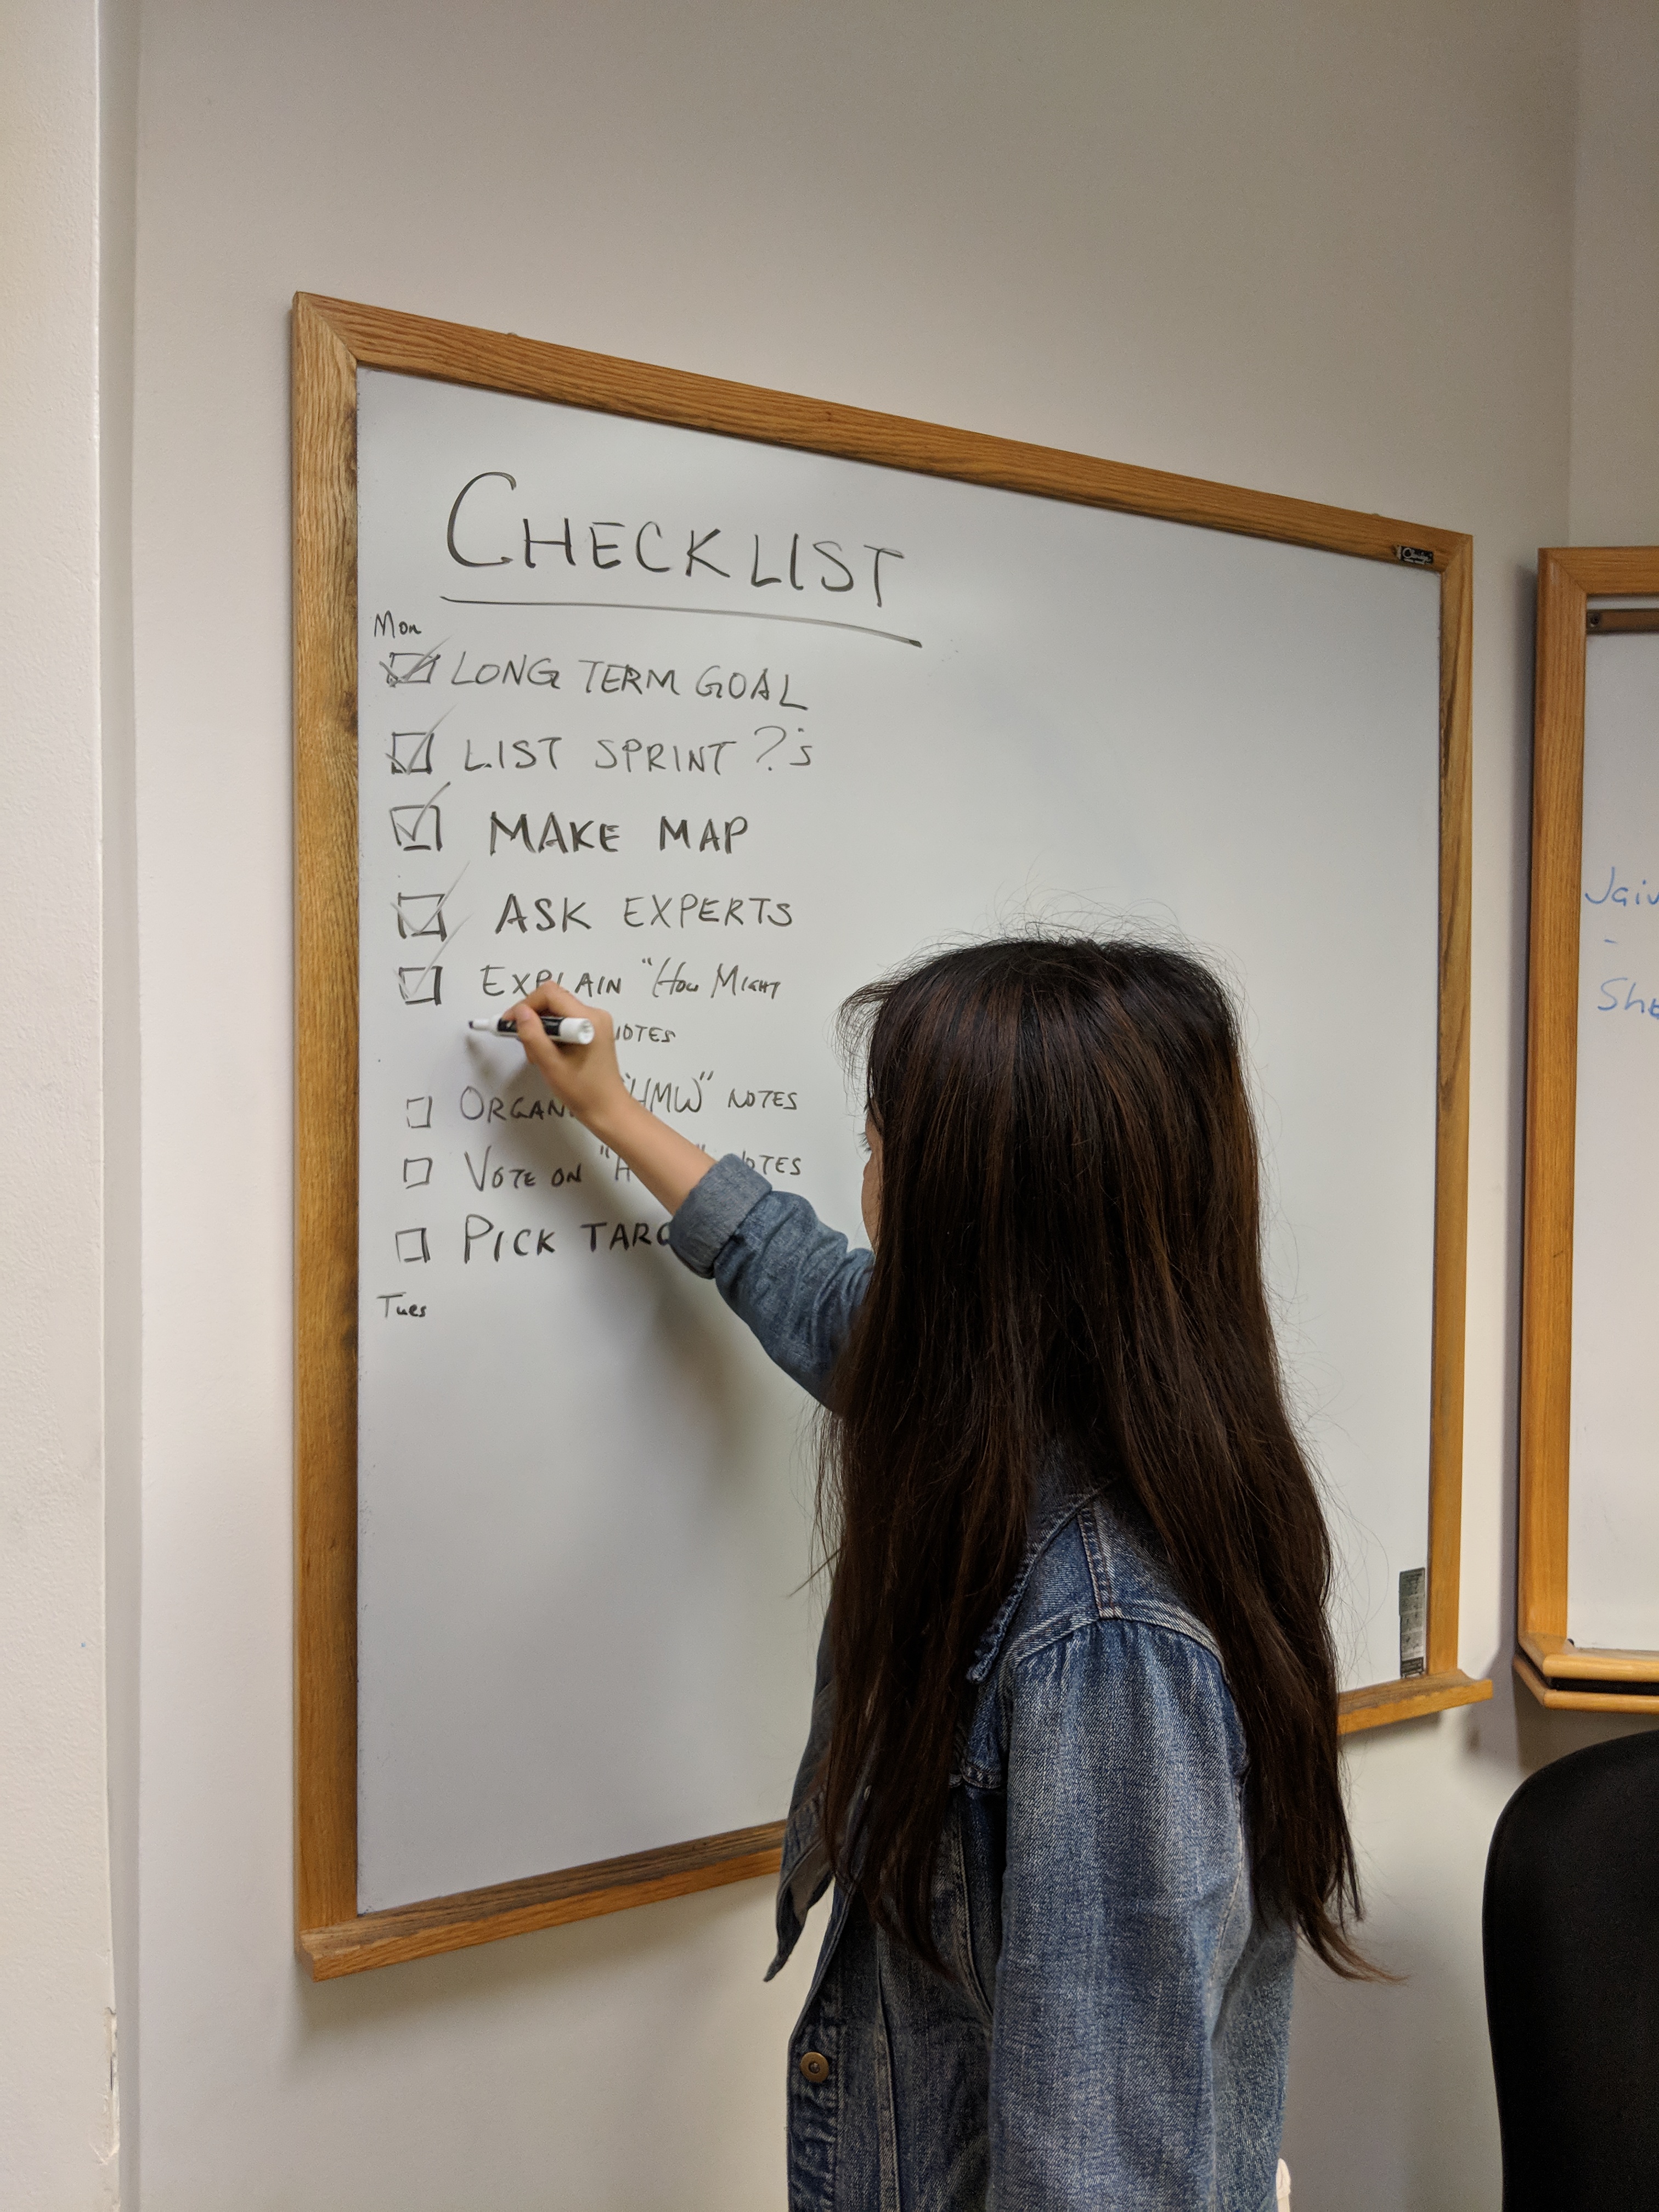 CHECKLIST
Mon
LONG TERM GOAL
LIST SPRINT ?'s
MAKE MAP
ASK EXPERTS
EXPLAIN "HOW MIGHT
NOTES
"HMW" NOTES
VOTE ON
PICK
Tues